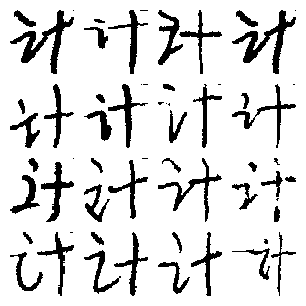 计计计计
计计计计
计计计计
计计计计